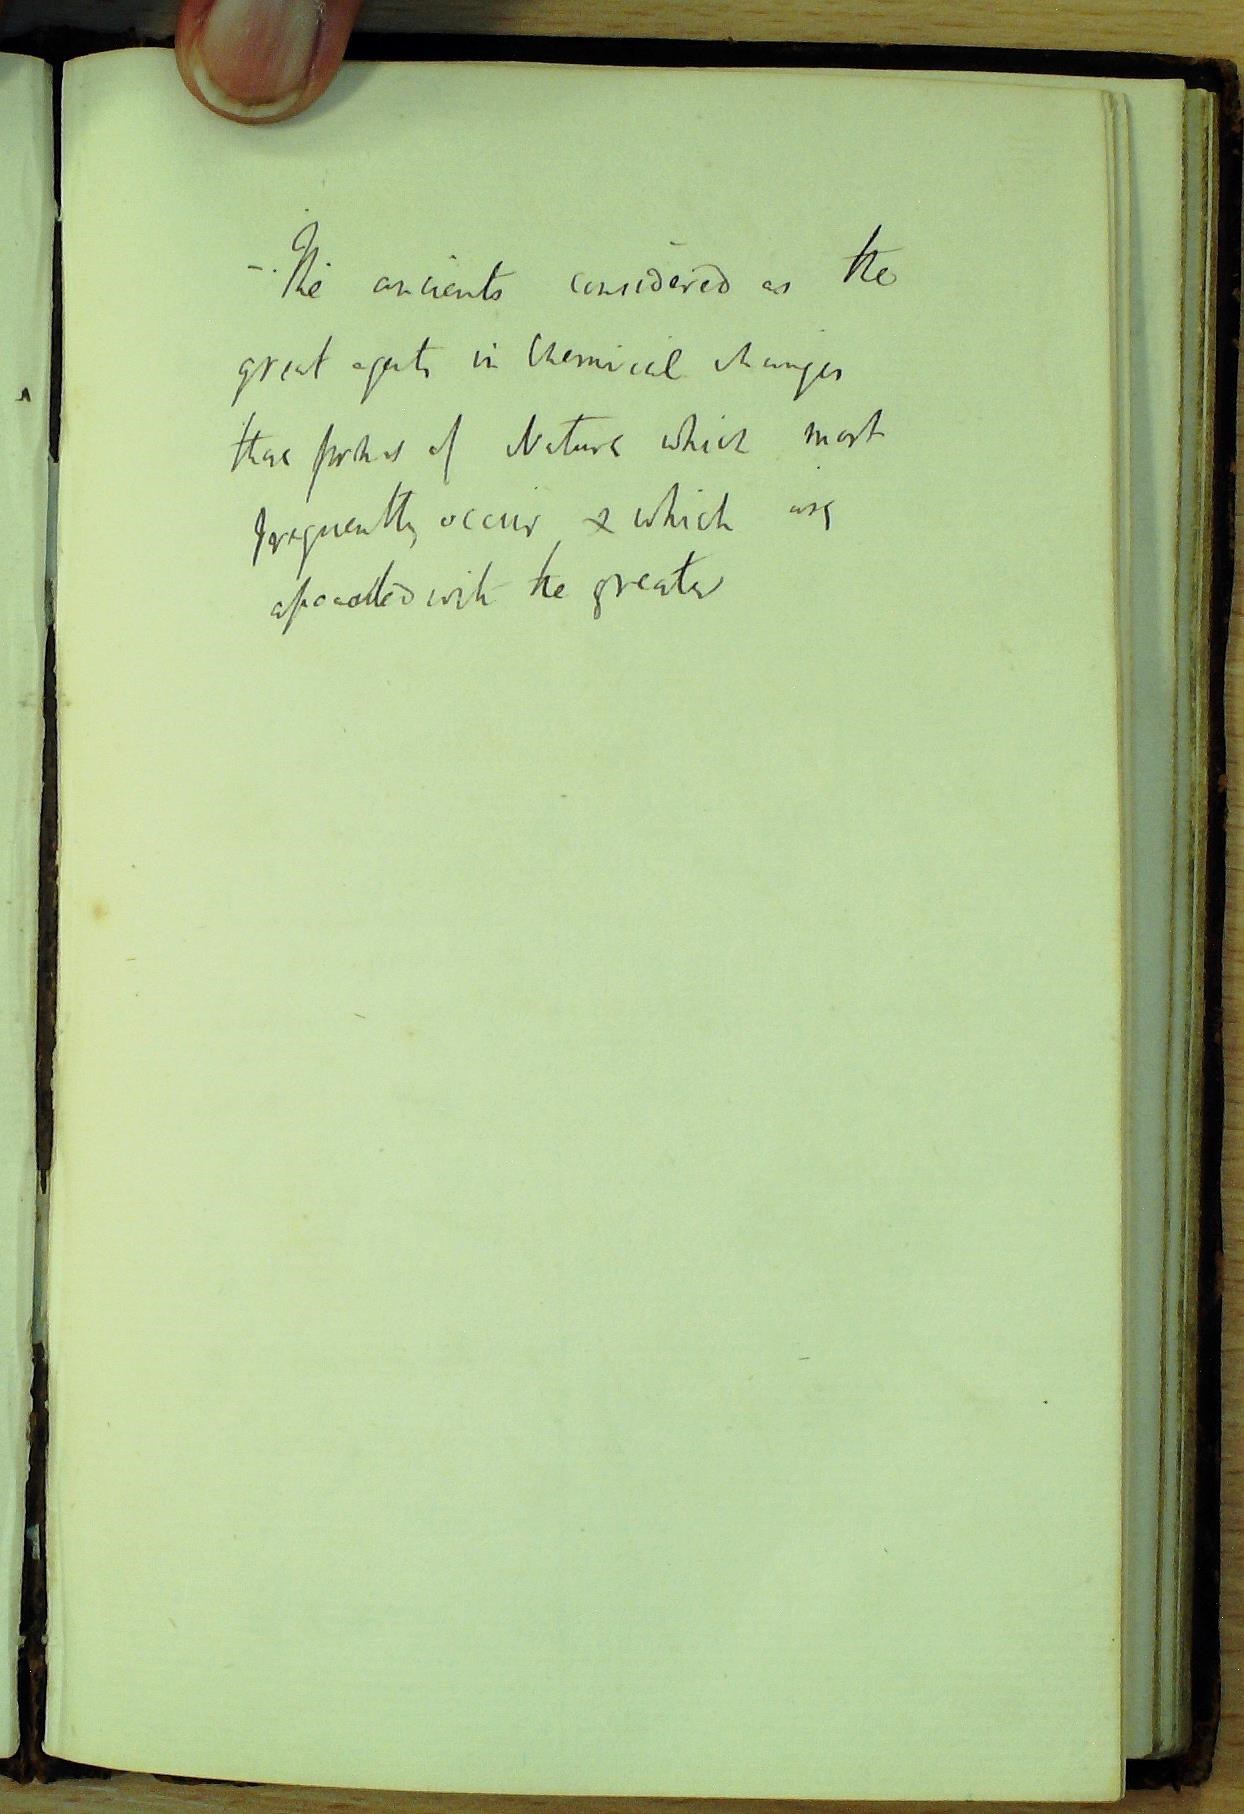 -. The ancients considered as the
great agents in Chemical changes
those powers of Nature which most
frequently occur & which are
associated with the greater